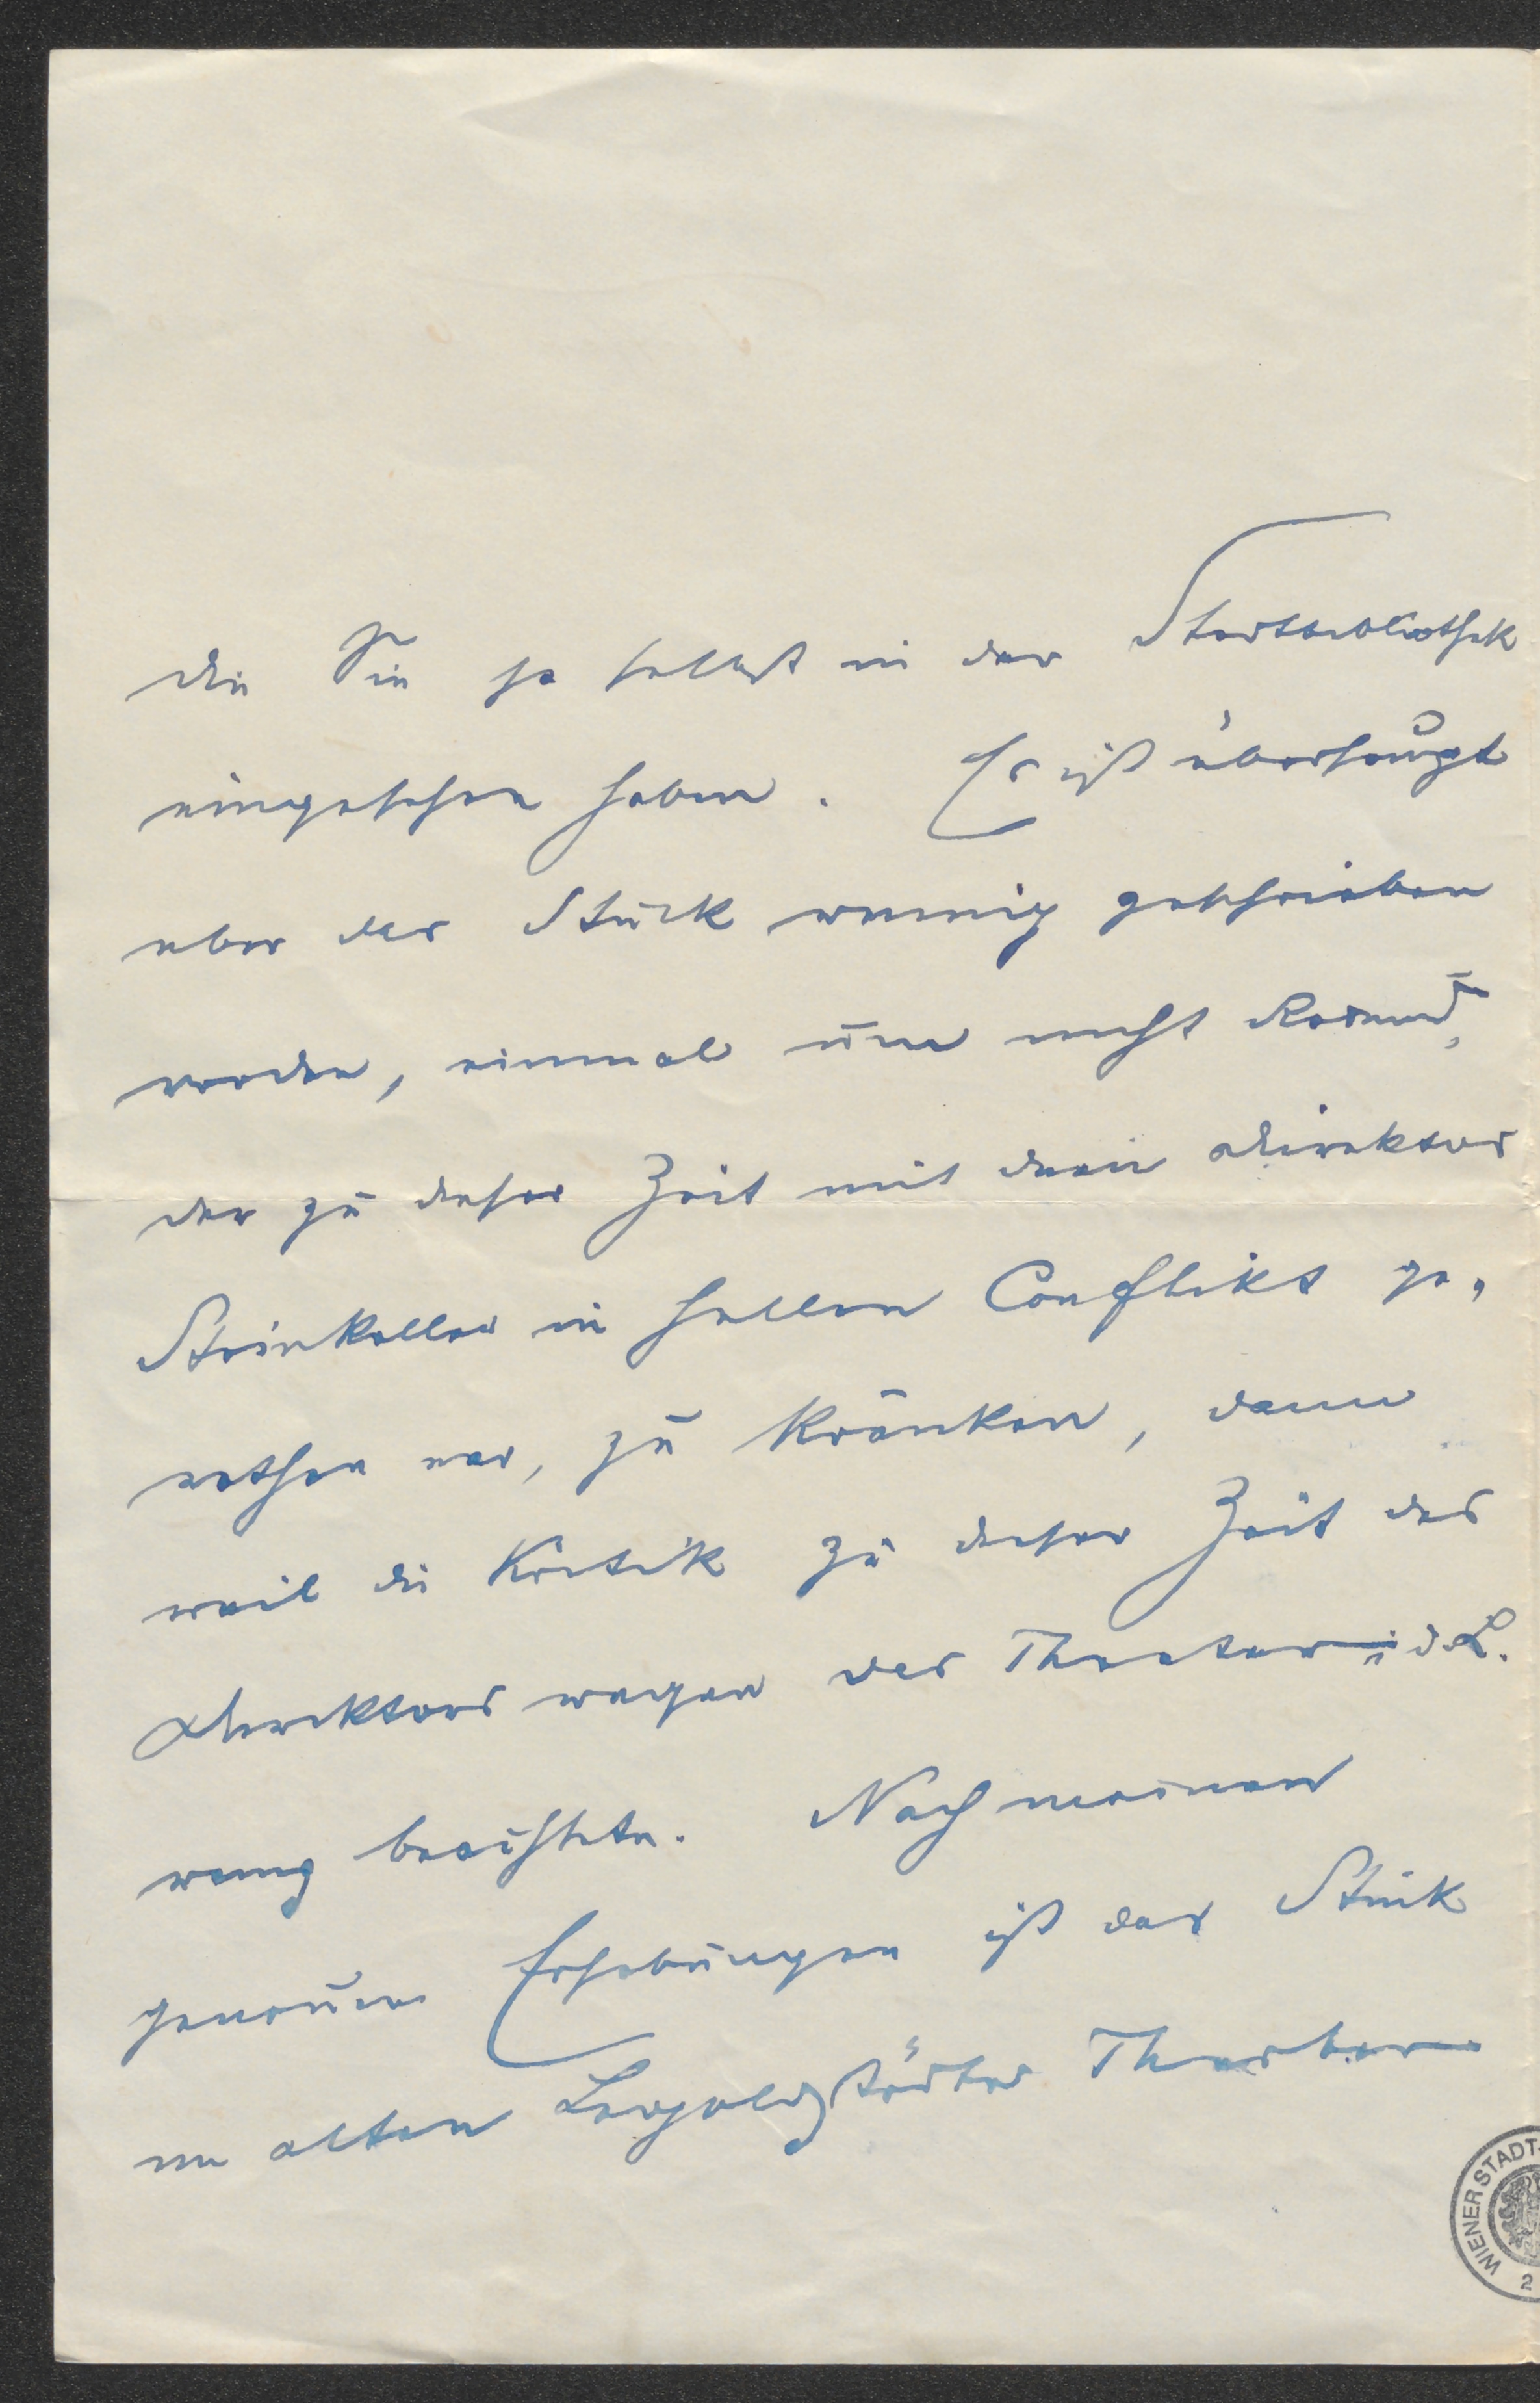 die Sie ja selbst in der Stadtbibliothek
eingesehen haben. Es ist überhaupt
über das Stück wenig geschrieben
worden, einmal um nicht Raimund,
der zu dieser Zeit mit dem Direktor
Steinkeller in hellen Conflikt ge„
rathen war, zu kränken, dann
weil die Kritik zu dieser Zeit des
Direktors wegen das Theater i. d. L.
wenig beachtete. Nach meinen
genauen Erhebungen ist das Stück
im alten Leopoldstädter Theater
WIENER STADT-
2